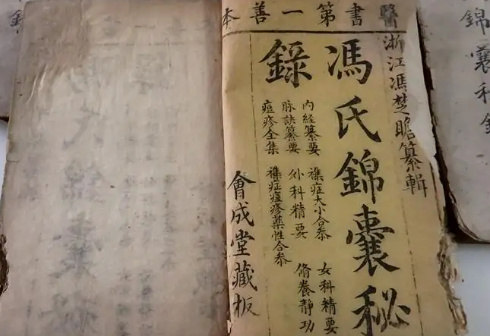 醫書第一善本
浙江馮楚瞻纂輯
馮氏錦囊秘
錄
內經纂要 襍症大小合叅 女科精要
脉訣纂要 外科精要 脩養靜功
痘疹全集 襍症痘疹藥性合叅
會成堂藏板
錦囊秘